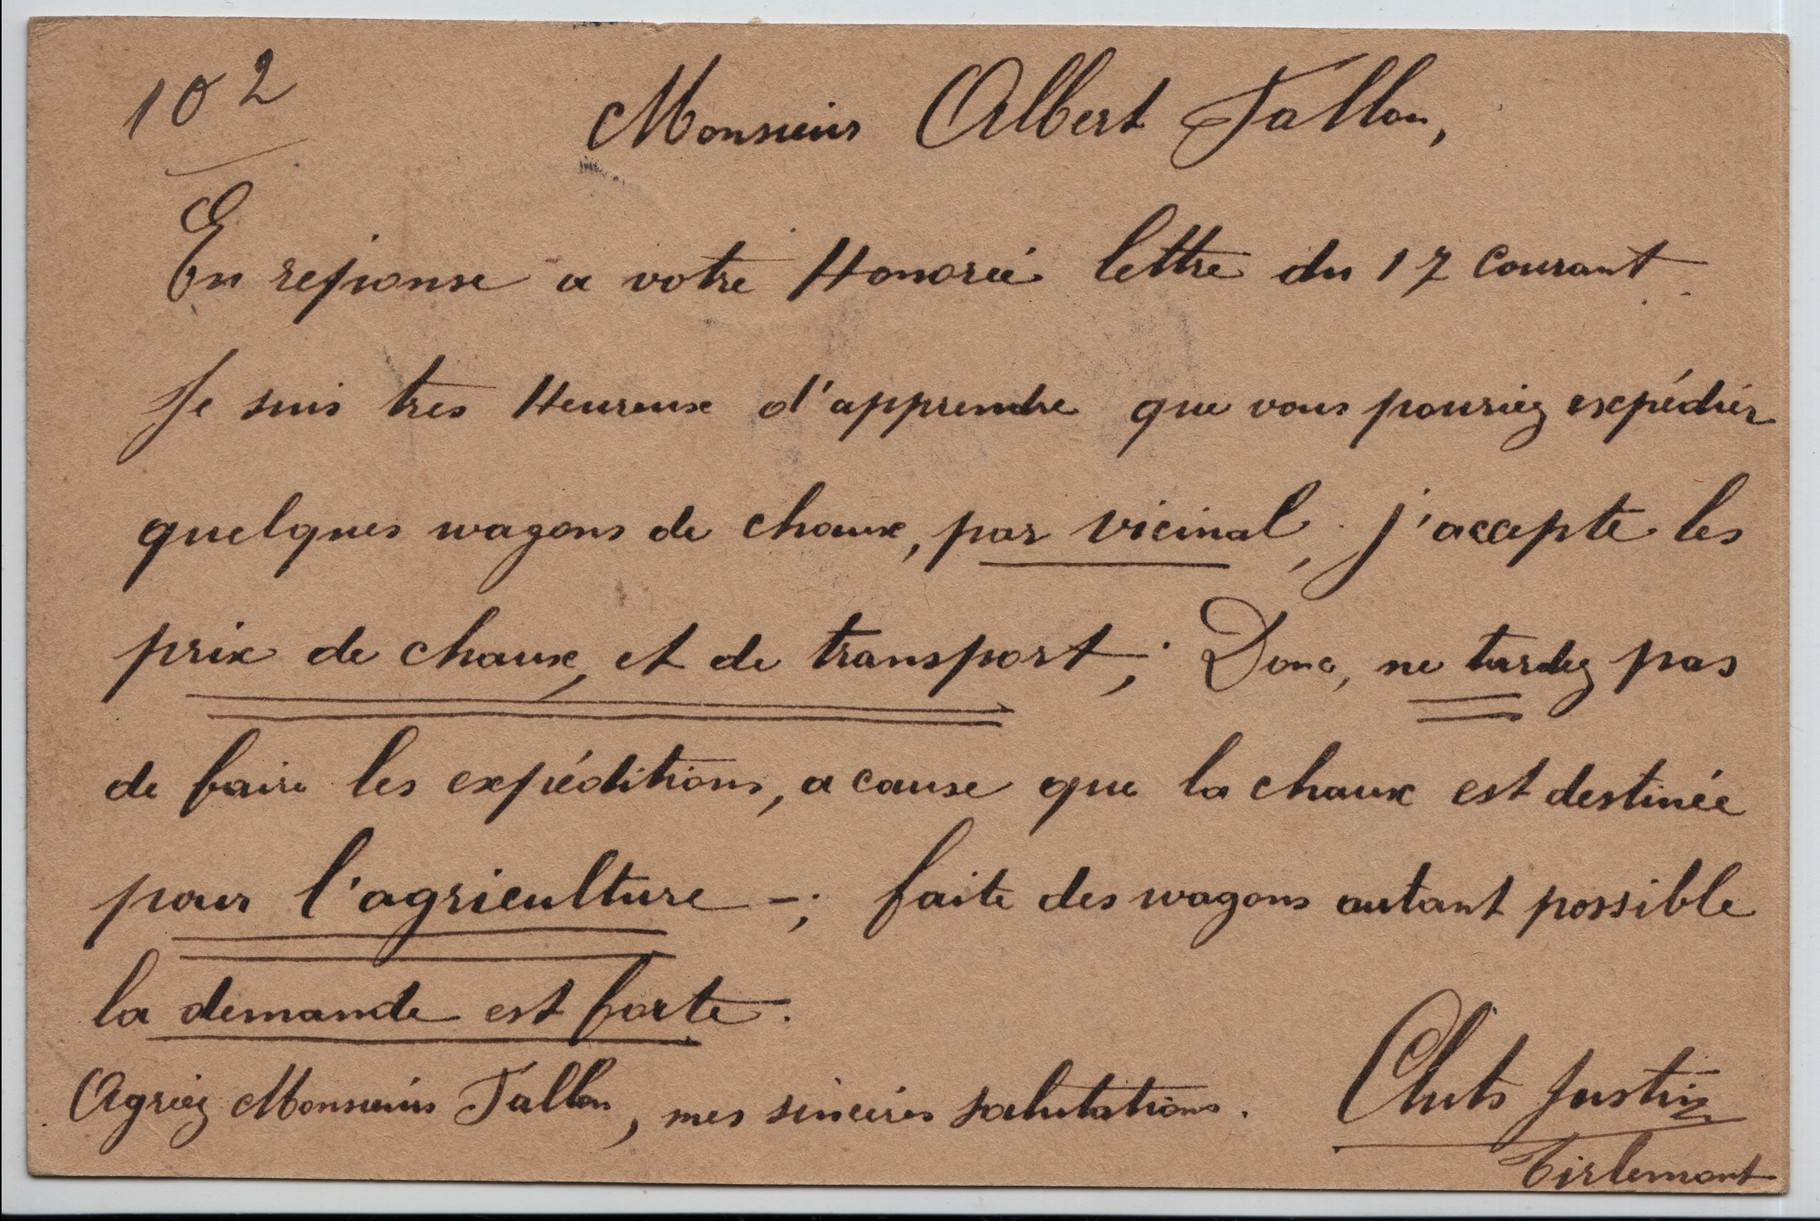 102
Monsieur Albert Tallon,
En reponse a votre Honorée lettre du 17 courant
Je suis tres Heureux d'apprendre que vous pouriez expédier
quelques wagons de chaux, par vicinal, j'accepte les
prix de chaux, et de transport; Donc, ne tardez pas
de faire les expéditions, a cause que la chaux est destinée
pour l'agriculture -; faite des wagons autant possible
la demande est forte.
Agriez Monsieur Tallon, mes sincères salutations.
Cluts Justin
Tirlemont